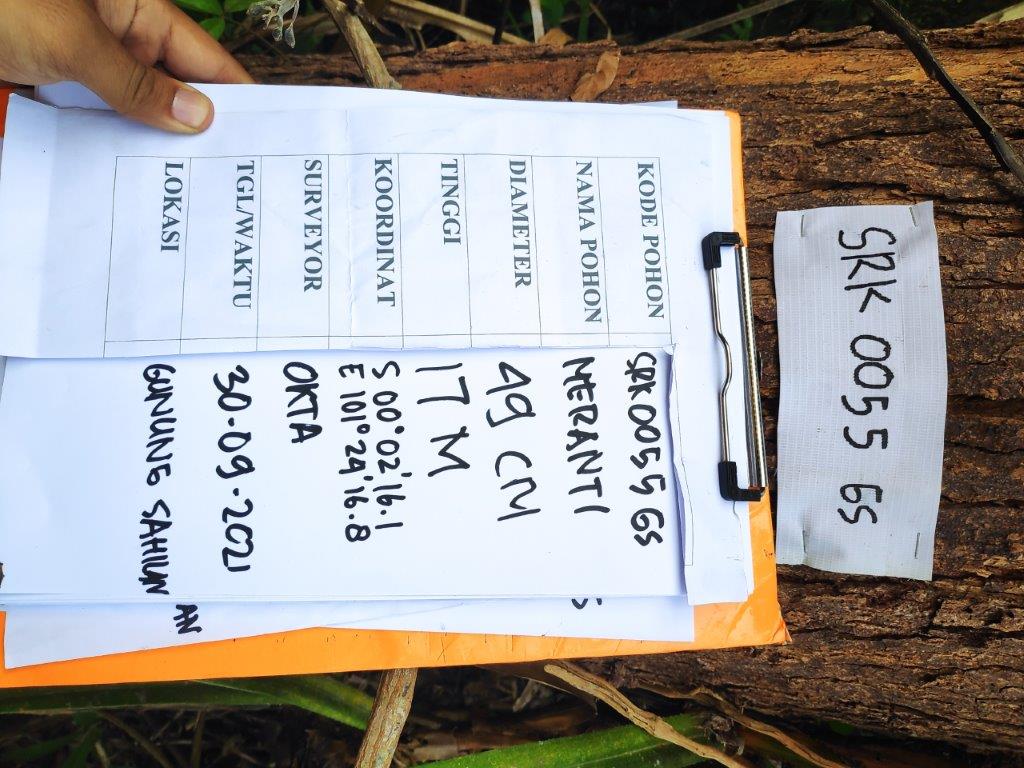 SRK 0055 GS
KODE POHON SRK 0055 GS
NAMA POHON MERANTI
DIAMETER 49 CM
TINGGI 17 M
KOORDINAT S 00°02'16.1
E 101°24'16.8
SURVEYOR OKTA
TGL/WAKTU 30.09.2021
LOKASI GUNUNG SAHILAN
S
AN